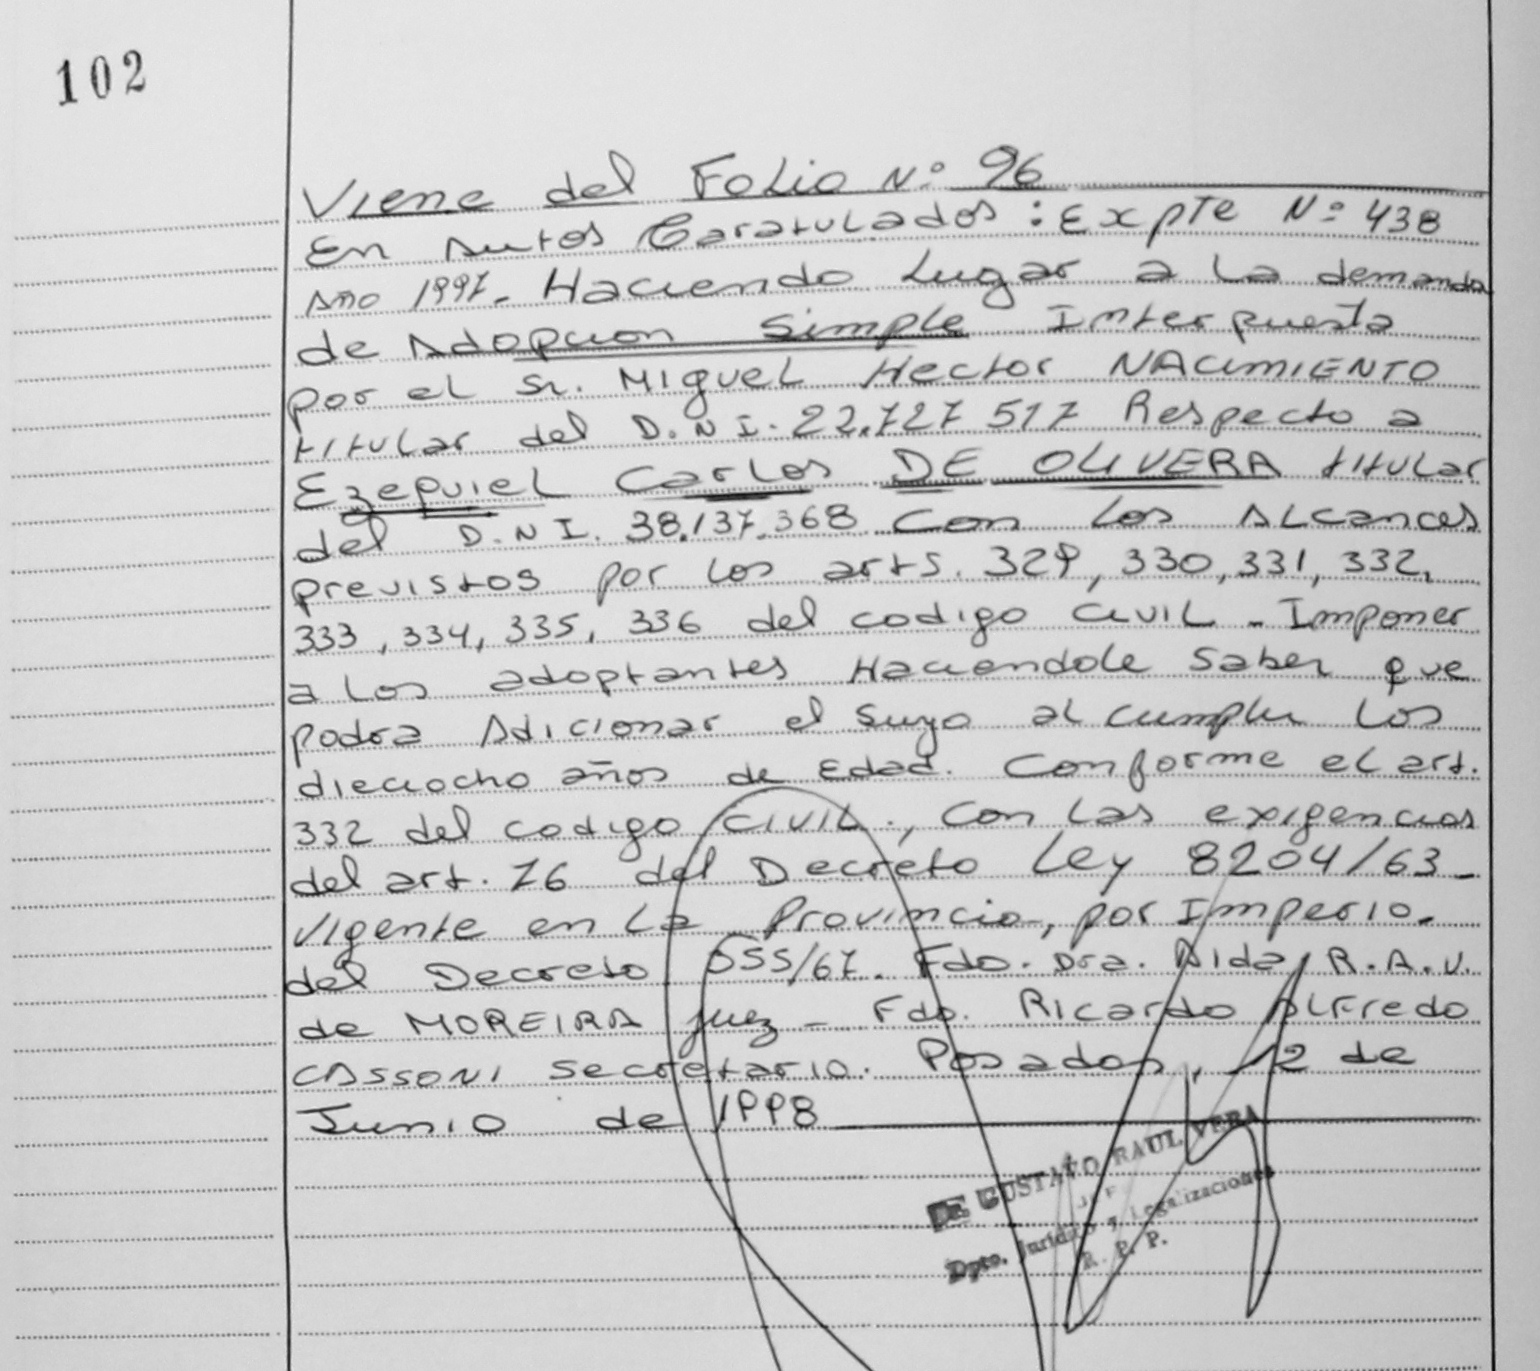 102
Viene del Folio N° 96
En Autos Caratulados: Expte N° 438
Año 1997. Haciendo Lugar a la demanda
de Adopcion Simple Interpuesta
por el Sr. Miguel Hector NACIMIENTO
titular del D.N.I. 22.727 517 Respecto a
Ezequiel Carlos DE OLIVERA titular
del D.N I. 38.137.368 Con los Alcances
previstos por los arts. 329, 330, 331, 332,
333, 334, 335, 336 del codigo civil - Imponer
a los adoptantes Haciendole Saber que
podra Adicionar el suyo al cumplir los
dieciocho años de Edad. Conforme el art.
332 del codigo civil., Con las exigencias
del art. 76 del Decreto Ley 8204/63 -
Vigente en La Provincia, por Imperio.
del Decreto 055/67. Fdo. Dra. Aida R.A.V.
de MOREIRA Juez - Fdo. Ricardo Alfredo
CASSONI Secretario. Posadas, 12 de
Junio de 1998
Dr. GUSTAVO RAUL VERA
Dpto. Juridico y Legalizaciones
R. P. P.